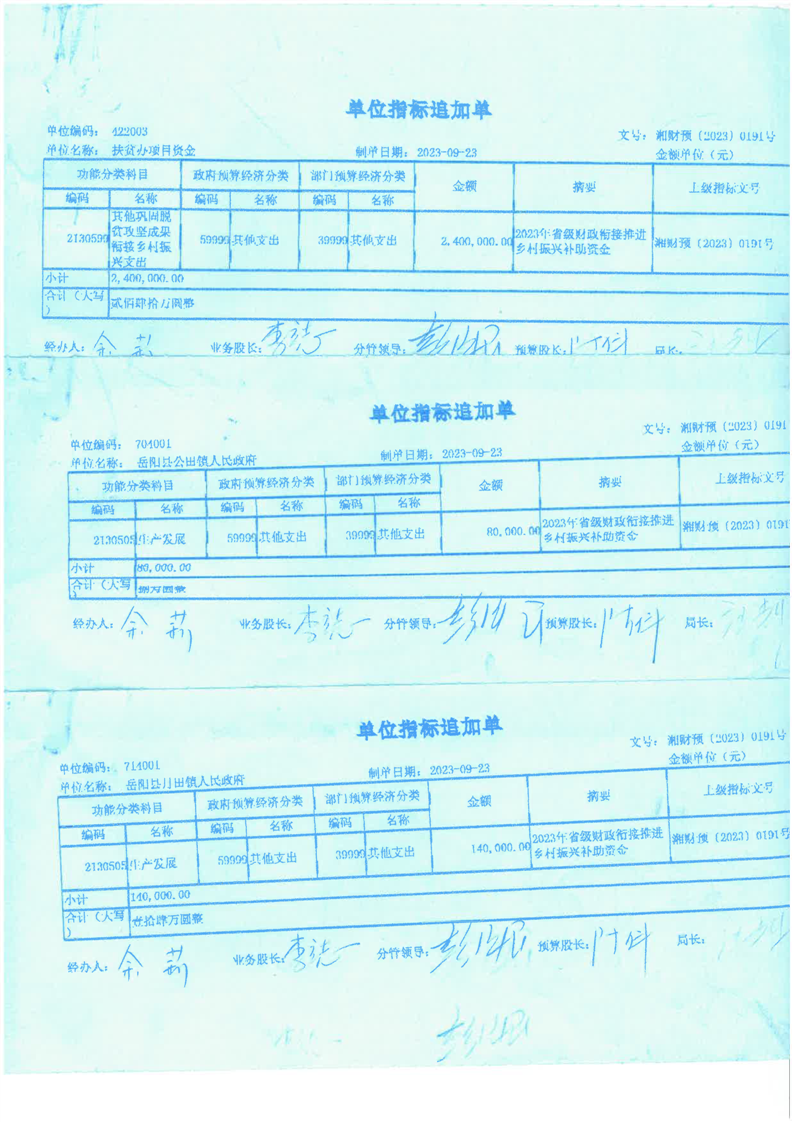 单位指标追加单
单位编码： 422003 文号： 湘财预〔2023〕0191号
单位名称： 扶贫办项目资金 制单日期： 2023-09-23 金额单位（元）
功能分类科目 政府预算经济分类 部门预算经济分类 金额 摘要 上级指标文号
编码 名称 编码 名称 编码 名称
2130599 其他巩固脱贫攻坚成果衔接乡村振兴支出 59999 其他支出 39999 其他支出 2,400,000.00 2023年省级财政衔接推进乡村振兴补助资金 湘财预〔2023〕0191号
小计 2,400,000.00
合计（大写） 贰佰肆拾万圆整
经办人： 余莉 业务股长： 分管领导： 预算股长： 局长：
单位指标追加单
单位编码： 704001 文号： 湘财预〔2023〕0191
单位名称： 岳阳县公田镇人民政府 制单日期： 2023-09-23 金额单位（元）
功能分类科目 政府预算经济分类 部门预算经济分类 金额 摘要 上级指标文号
编码 名称 编码 名称 编码 名称
2130505 生产发展 59999 其他支出 39999 其他支出 80,000.00 2023年省级财政衔接推进乡村振兴补助资金 湘财预〔2023〕0191
小计 80,000.00
合计（大写） 捌万圆整
经办人： 余莉 业务股长： 分管领导： 预算股长： 局长：
单位指标追加单
单位编码： 714001 文号： 湘财预〔2023〕0191号
单位名称： 岳阳县月田镇人民政府 制单日期： 2023-09-23 金额单位（元）
功能分类科目 政府预算经济分类 部门预算经济分类 金额 摘要 上级指标文号
编码 名称 编码 名称 编码 名称
2130505 生产发展 59999 其他支出 39999 其他支出 140,000.00 2023年省级财政衔接推进乡村振兴补助资金 湘财预〔2023〕0191号
小计 140,000.00
合计（大写） 壹拾肆万圆整
经办人： 余莉 业务股长： 分管领导： 预算股长： 局长：